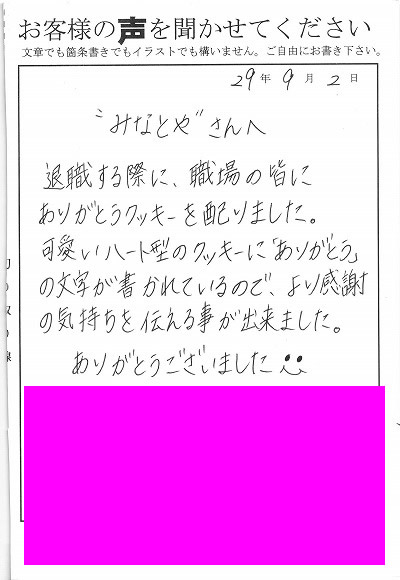 お客様の声を聞かせてください
文章でも箇条書きでもイラストでも構いません。ご自由にお書き下さい。
29年9月2日
"みなとや"さんへ
退職する際に、職場の皆に
ありがとうクッキーを配りました。
可愛いハート型のクッキーに「ありがとう」
の文字が書かれているので、より感謝
の気持ちを伝える事が出来ました。
ありがとうございました